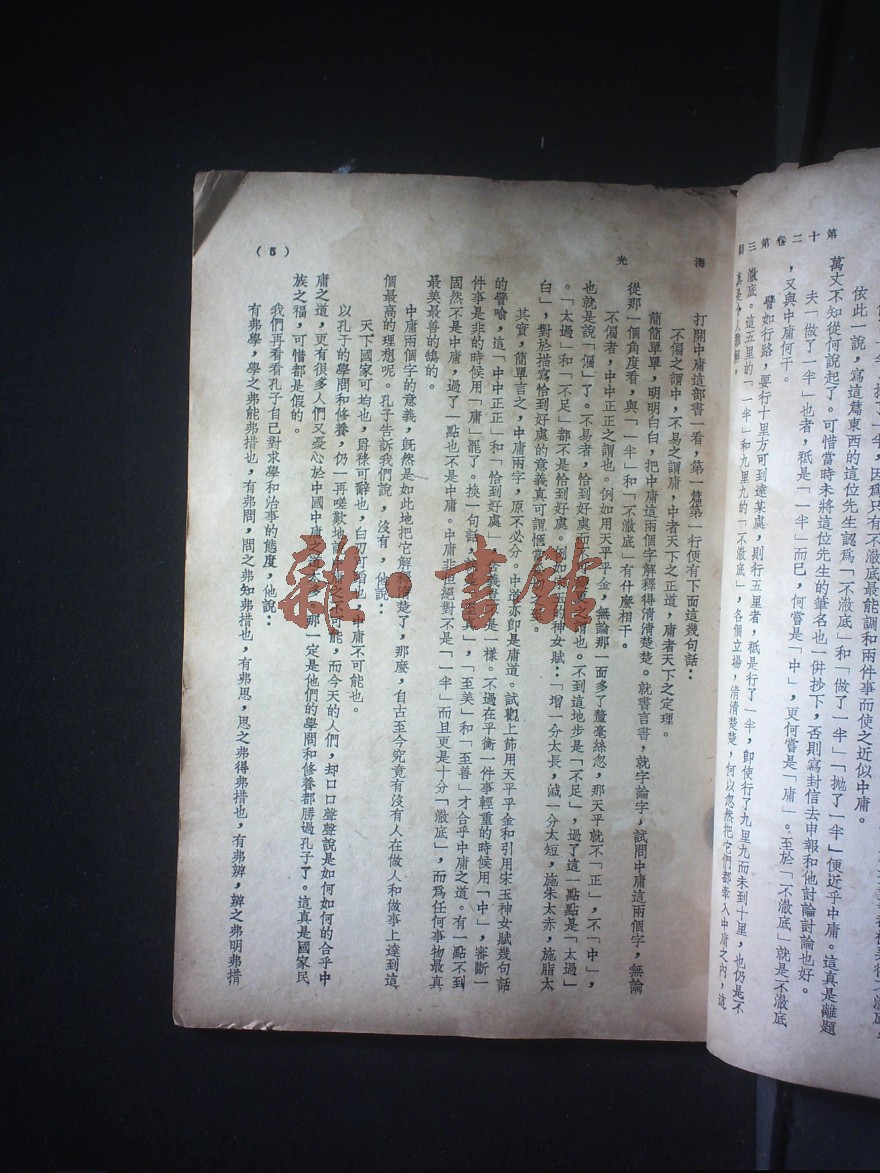 第十二卷第三期
依此一說，寫這篇東西的這位先生認爲「不澈底」和「做了一半」「拋了一半」便近乎中庸。這真是離題
萬丈不知從何說起了。可惜當時未將這位先生的筆名也一併抄下，否則寫封信去申報和他討論討論也好。
夫「做了一半」也者，祇是「一半」而已，何嘗是「中」，更何嘗是「庸」。至於「不澈底」就是不澈底
，又與中庸何干。
譬如行路，要行十里方可到達某處，則行五里者，祇是行了一半，卽使行了九里九而未到十里，也仍是不
澈底。這五里的「一半」和九里九的「不澈底」，各個立場，清清楚楚，何以忽然把它們都牽入中庸之內，這
海光
打開中庸這部書一看，第一篇第一行便有下面這幾句話：
不偏之謂中，不易之謂庸，中者天下之正道，庸者天下之定理。
簡簡單單，明明白白，把中庸這兩個字解釋得清清楚楚。就書言書，就字論字，試問中庸這兩個字，無論
從那一個角度看，與「一半」和「不澈底」有什麼相干。
不偏者，中中正正之謂也。例如用天平平金，無論那一面多了釐毫絲忽，那天平就不「正」，不「中」，
也就是說「偏」了。不易者，恰到好處而之謂也。不到這地步是「不足」，過了這一點點是「太過」
。「太過」和「不足」都不是恰到好處。例如宋玉的神女賦：「增一分太長，減一分太短，施朱太赤，施脂太
白」，對於描寫恰到好處的意義真可謂愜當
其實，簡單言之，中庸兩字，原不必分。中道亦卽是庸道。試觀上節用天平平金和引用宋玉神女賦幾句話
的譬喻，這「中中正正」和「恰到好處」含義是一樣。不過在平衡一件事輕重的時候用「中」，審斷一
件事是非的時候用「庸」罷了。換一句話，「至真」，「至美」和「至善」才合乎中庸之道。有一點不到
固然不是中庸，過了一點也不是中庸。中庸非但絕對不是「一半」而且更是十分「澈底」，而爲任何事物最真
最美最善的鵠的。
中庸兩個字的意義，既然是如此地把它解釋清楚了，那麼，自古至今究竟有沒有人在做人和做事上達到這
個最高的理想呢。孔子告訴我們說，沒有，他說：
天下國家可均也，爵祿可辭也，白刃可蹈也，中庸不可能也。
以孔子的學問和修養，仍一再嗟歎地說中庸之不可能，而今天的人們，却口口聲聲說是如何如何的合乎中
庸之道，更有很多人們又憂心於中國中庸之道太多，那一定是他們的學問和修養都勝過孔子了。這真是國家民
族之福，可惜都是假的。
我們再看看孔子自己對求學和治事的態度，他說：
有弗學，學之弗能弗措也，有弗問，問之弗知弗措也，有弗思，思之弗得弗措也，有弗辨，辨之弗明弗措
(5)
雜·書館